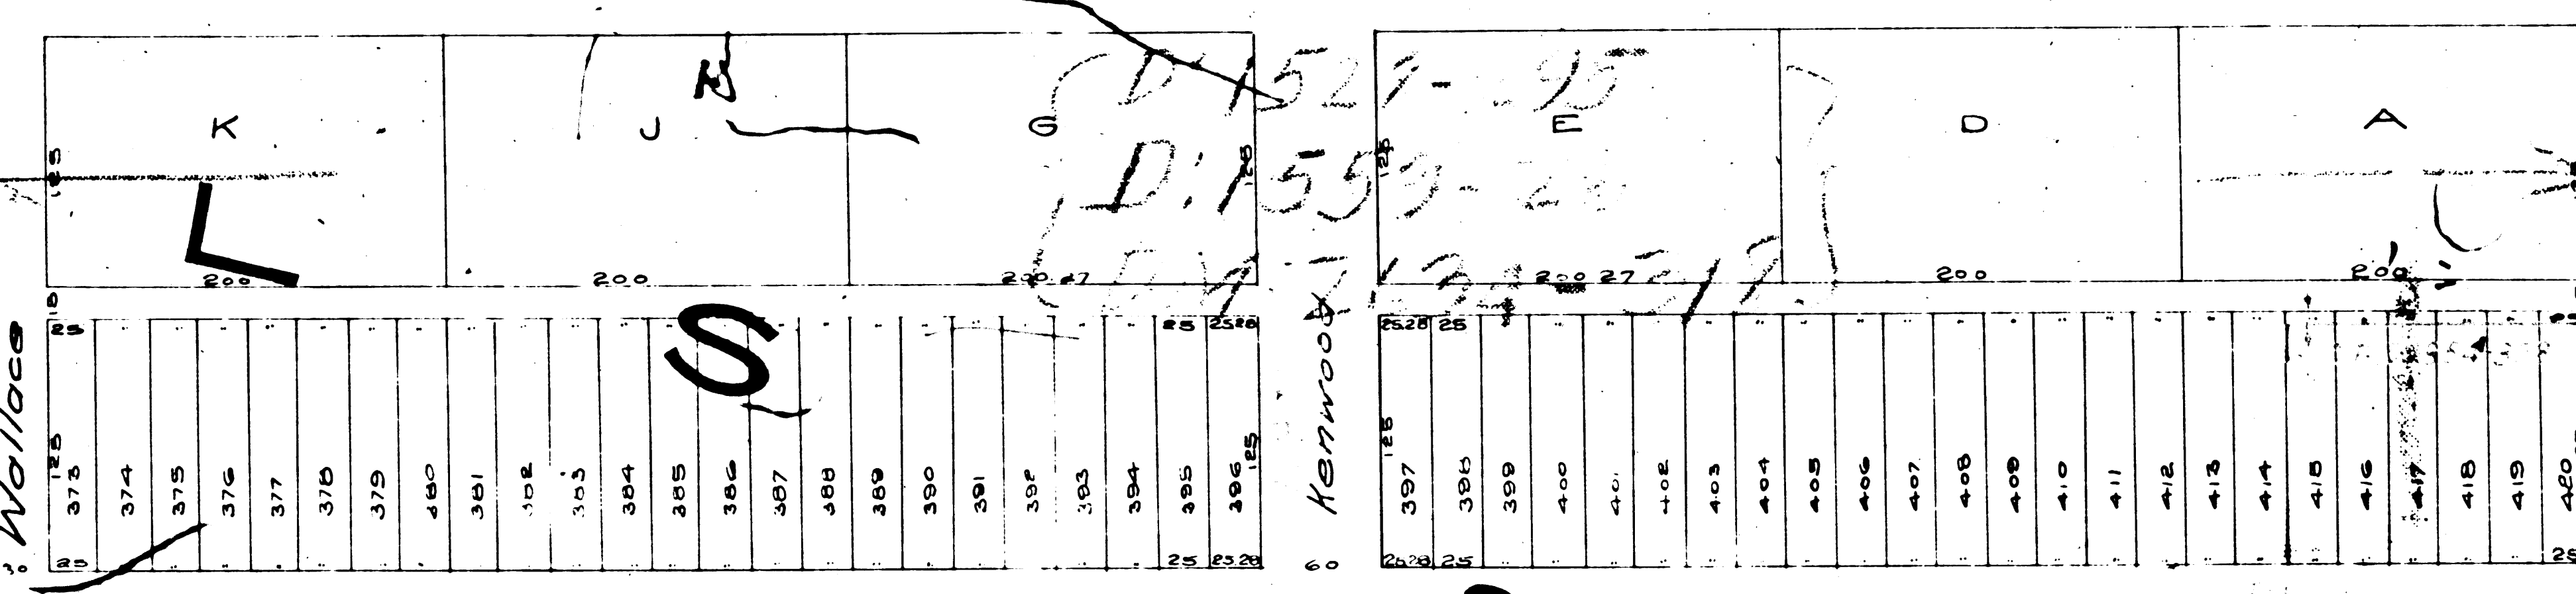 K J G E D A
D: 1527- 295
D: 1553-
125 125 125
200 200 200.27 200.27 200 200
L
S
18
25 25 25.28 25.28 25
Wallace
Kenwood
125 125 125
373 374 375 376 377 378 379 380 381 382 383 384 385 386 387 388 389 390 391 392 393 394 395 396 397 398 399 400 401 402 403 404 405 406 407 408 409 410 411 412 413 414 415 416 417 418 419 420
30 25 25 25.28 60 25.28 25 25